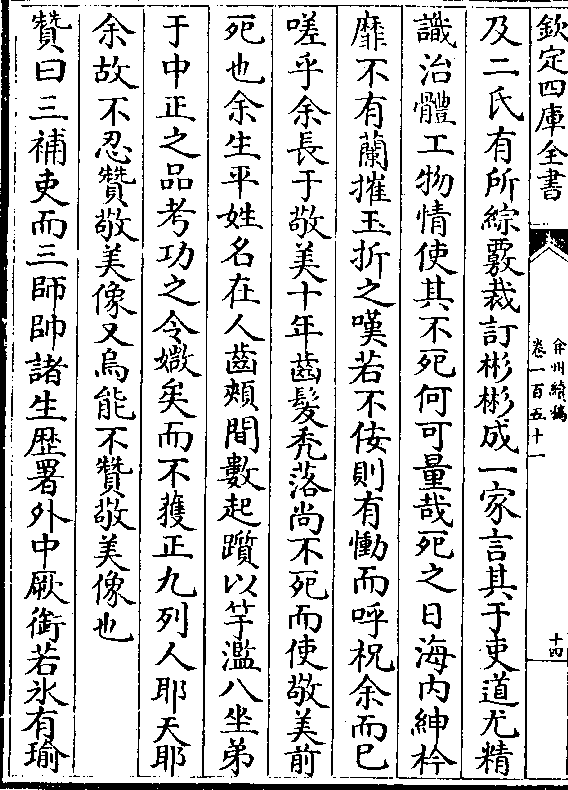 欽定四庫全書
弇州續稿
卷一百五十一
十四
及二氏有所綜覈裁訂彬彬成一家言其于吏道尤精
識治體工物情使其不死何可量哉死之日海内紳衿
靡不有蘭摧玉折之嘆若不佞則有慟而呼柷余而已
嗟乎余長于敬美十年齒髮禿落尚不死而使敬美前
死也余生平姓名在人齒頰間數起躓以竽濫八坐弟
于中正之品考功之令媺矣而不獲正九列人耶天耶
余故不忍贊敬美像又烏能不贊敬美像也
贊曰三補吏而三師帥諸生歷署外中厥銜若氷有瑜